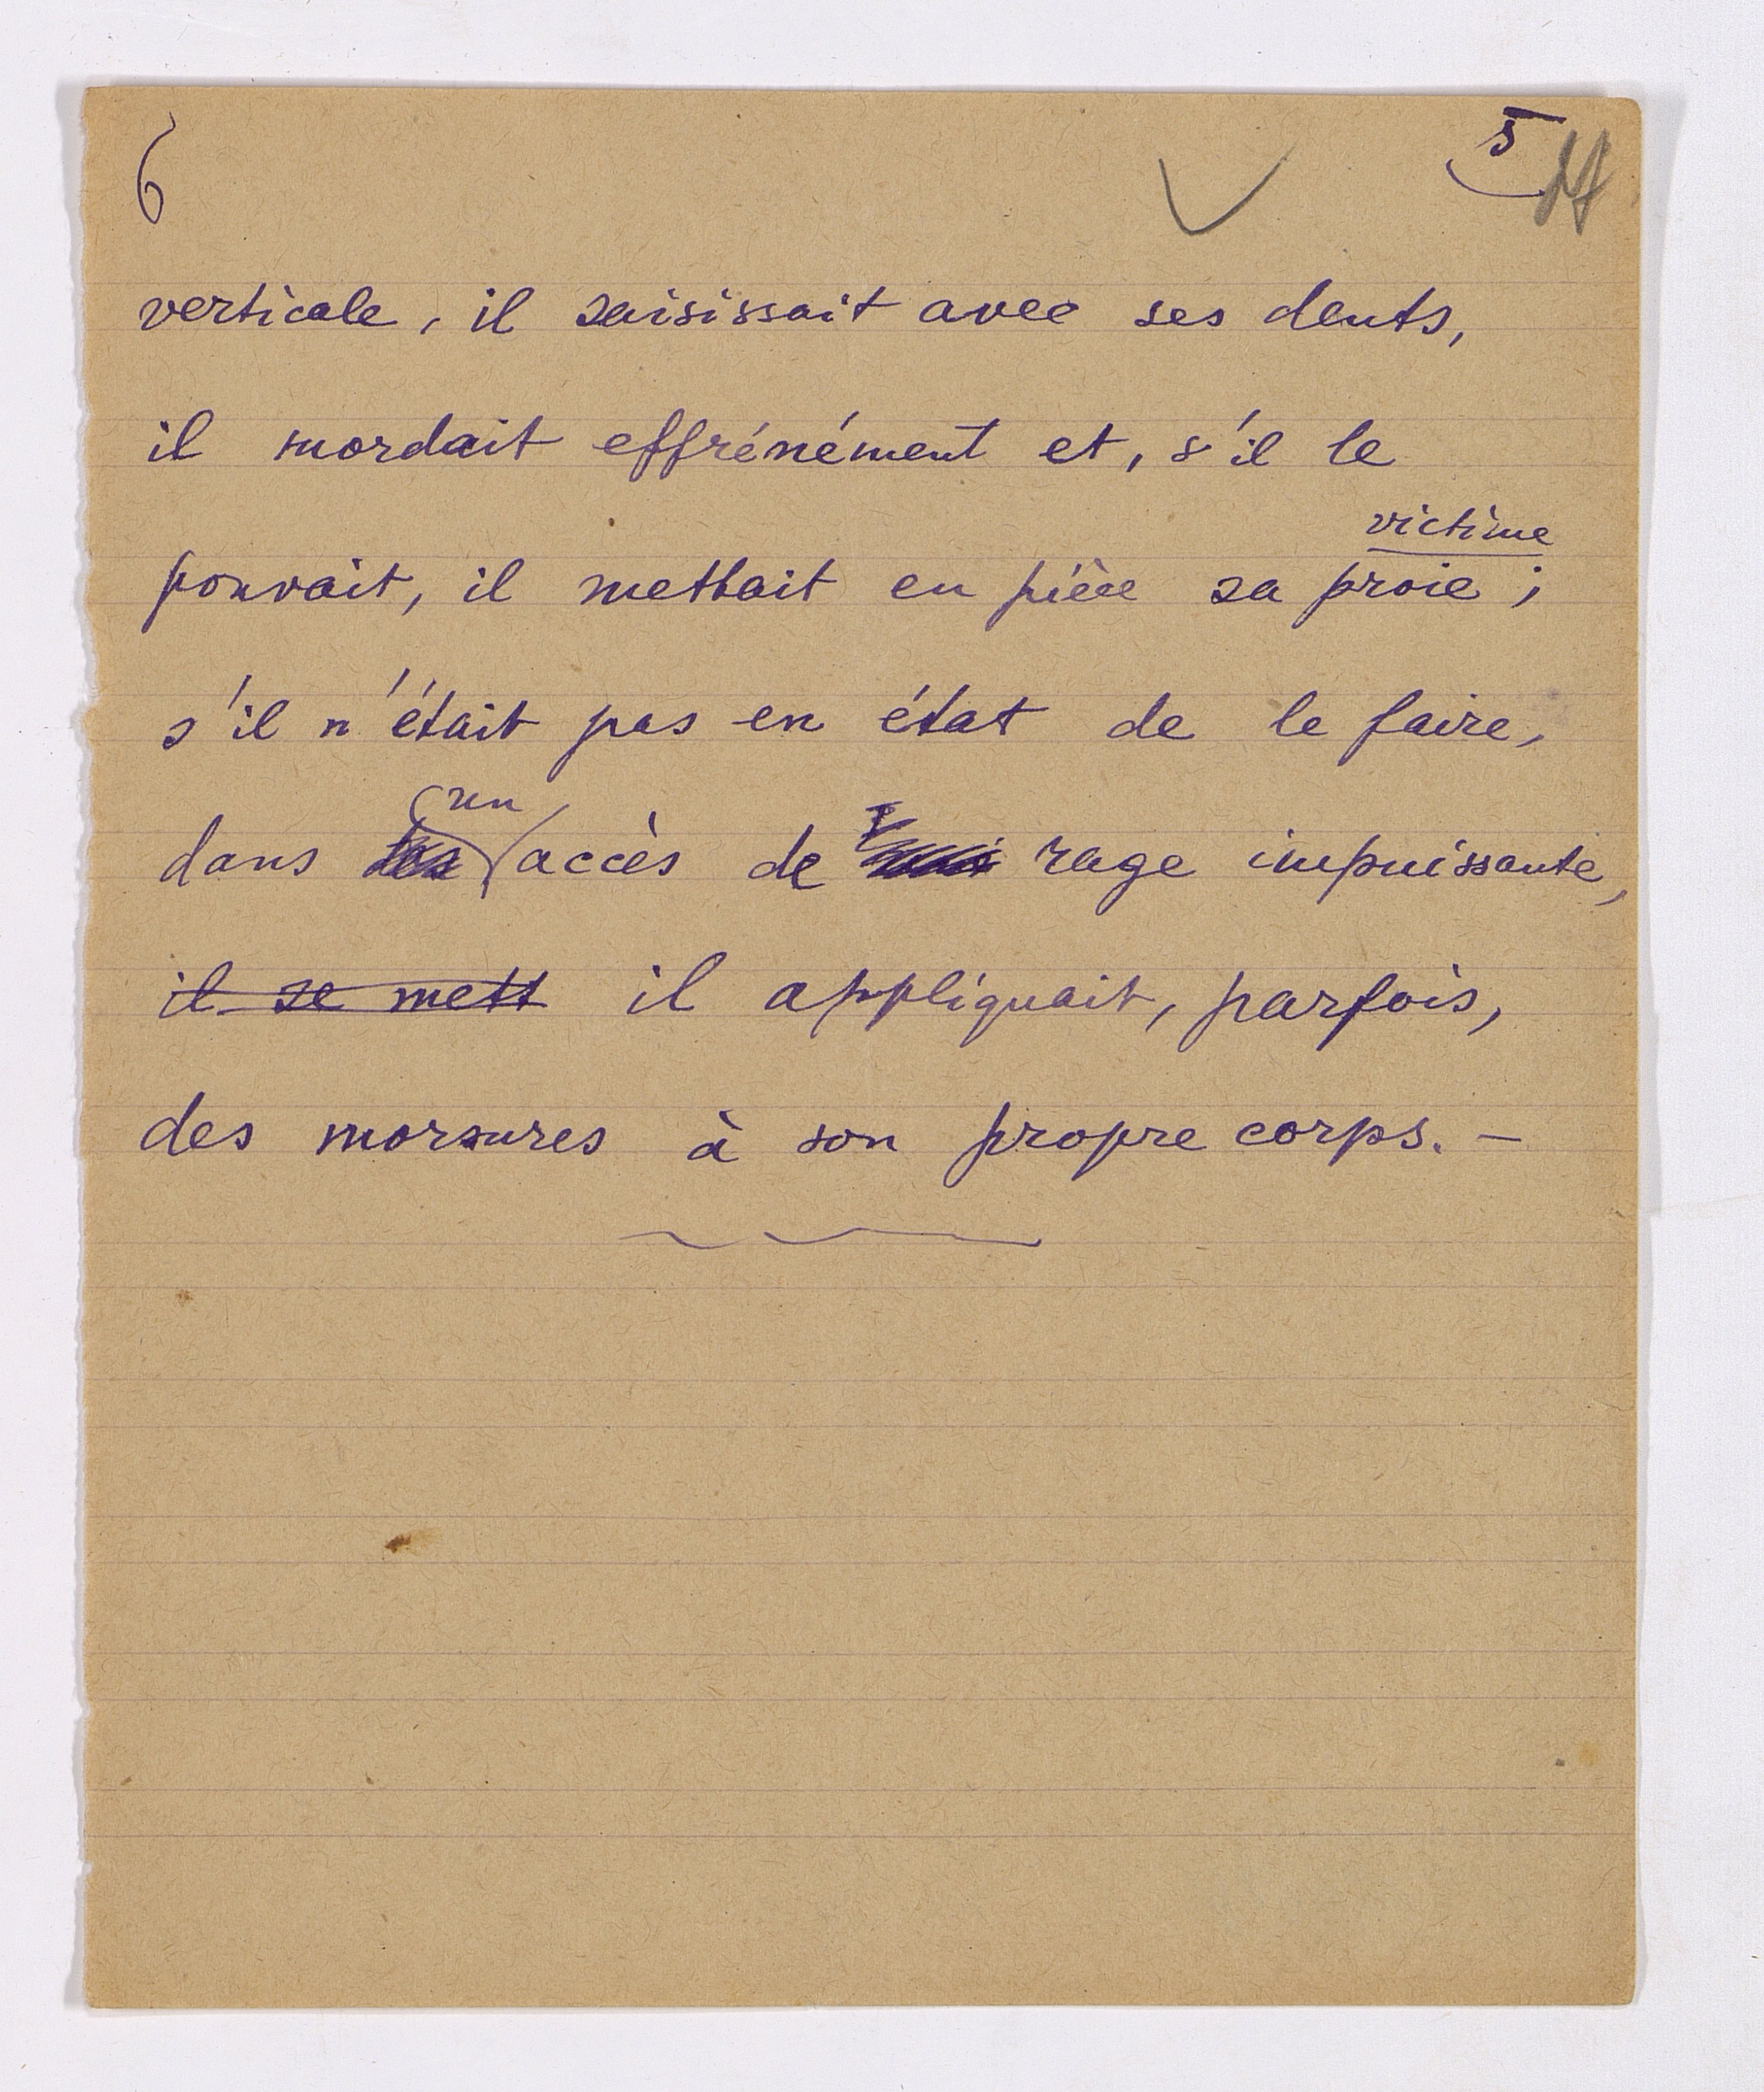 6 5
verticale, il saisissait avec ses dents,
il mordait effrénément et, s'il le
victime
pouvait, il mettait en pièce sa proie ;
s'il n'était pas en état de le faire,
un
dans accès de rage impuissante,
il se mett il appliquait, parfois,
des morsures à son propre corps. —